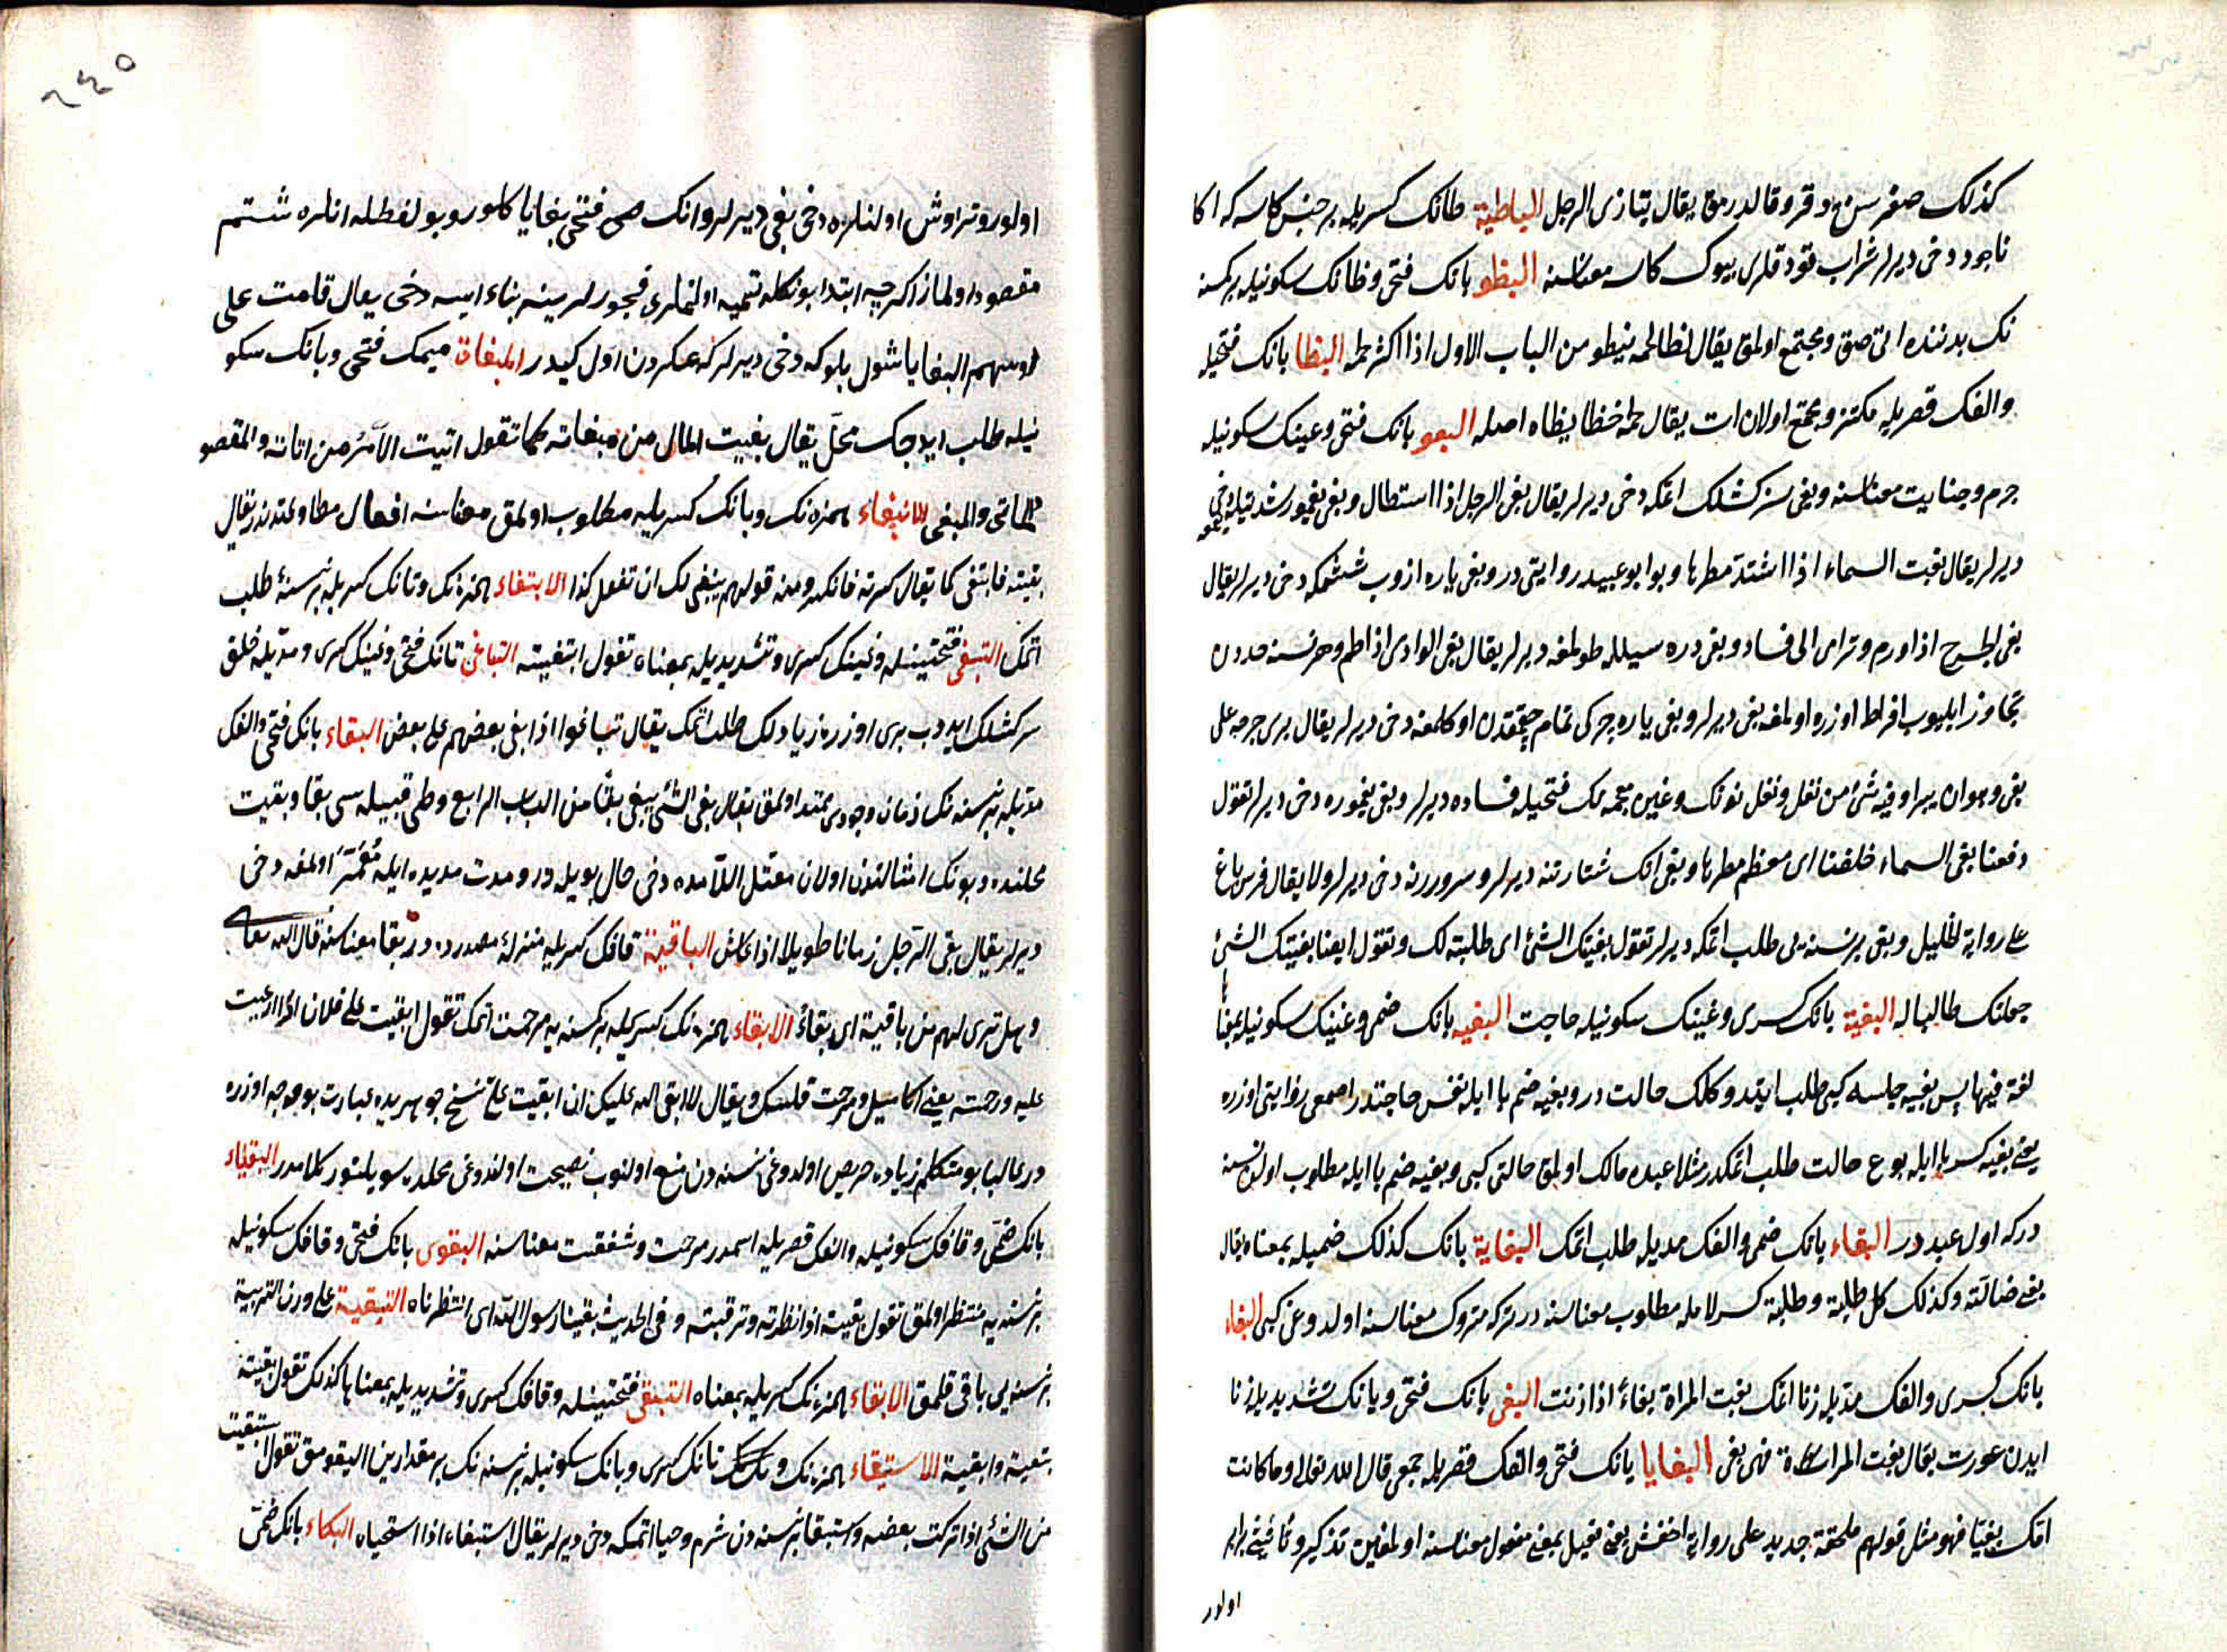 كذلك صغر سن دوقر وقالدرمق يقال تبازى الرجل الباطية طانك كسريله بر جنس كاسه كه اكا
ناجود دخى ديرلر شراب قودقلرى بيوك كاسه معناسنه البظو بانك فتحى وظانك سكونيله بر كمسنه
نك بدننده اتى صق ومجتمع اولمق يقال لظا لحمه يبظو من الباب الاول اذا اكثر لحمه البظا بانك فتحيله
والفك قصريله مكتنز ومجتمع اولان ات يقال لحمه خظا بظا اصله البعو بانك فتحى وعينك سكونيله
جرم وجنايت معناسنه وبغى سركشلك اتمكه دخى ديرلر يقال بغى الرجل اذا استطال وبغى يغمورك شدتيله
ديرلر يقال بغت السماء اذا اشتد مطرها وبو ابو عبيد روايتى در وبغى ياره ازوب ششمكه دخى ديرلر يقال
بغى الجرح اذا ورم وترامى الى فساد وبغى دره سيلله طولمغه ديرلر يقال بغى الوادى اذا طم وهر نسنه حددن
تجاوز ايليوب افراط اوزره اولمغه بغى ديرلر وبغى ياره چركى تمام چقمقدن اوكلمغه دخى ديرلر يقال برى جرحه على
بغى وهو ان يبرا وفيه شئ من نغل ونغل نونك وغين معجمه نك فتحيله فساده ديرلر وبغى يغموره دخى ديرلر تقول
دفعنا بغى السماء خلفنا اى معظم مطرها وبغى اتك شتارتنه ديرلر وسرورينه دخى ديرلر ولا يقال فرس باغ
على رواية الخليل وبغى بر نسنه يى طلب اتمكه ديرلر تقول بغيتك الشئ اى طلبته لك وتقول ايضا بغيتك الشئ
جعلتك طالبا له البغية بانك كسرى وغينك سكونيله حاجت البغيه بانك ضمى وغينك سكونيله بمعنا
لغة فيها پس بغيه جلسه كبى طلب ايتدوكلك حالت در وبغيه ضم با ايله نفس حاجتدر اصمعى روايتى اوزره
يعنى بغيه كسر با ايله بو ع حالت طلب اتمكدر مثلا عبده مالك اولمق حالتى كبى وبغيه ضم با ايله مطلوب اولان نسنه
دركه اول عبد در البغاء بانك ضمى والفك مديله طلب اتمك البغاية بانك كذلك ضميله بمعناه يقال
بغى ضالته وكذلك كل طلبة وطلبة كسر لام ايله مطلوب معناسنه در تركه متروك معناسنه اولدوغى كبى البغاء
بانك كسرى والفك مديله زنا اتمك بغت المراة بغاء اذا زنت البغى بانك فتحى ويانك تشديديله زنا
ايدن عورت يقال بغت المراة فهى بغى البغايا بانك فتحى والفك قصريله جمعى قال الله تعالى وما كانت
امك بغيا فهو مثل قولهم ملحفة جديد على رواية اخفش يعنى فعيل بمعنى مفعول معناسنه اولمغين تذكير وتأنيثى برابر
اولور
٢٤٥
اولور وقراوش اولنلره دخى بغى ديرلر وانك جمعى فتحى بغايا كلور وبو لفظله انلره شتم
مقصود اولماز اكرچه ابتدا بونكله تسميه اولنملرى فجورلرينه بناء ايسه دخى يقال قامت على
رؤسهم البغايا شول بلوكه دخى ديرلر كه عسكردن اول كيدر المبغاة ميمك فتحى وبانك سكو
نيله طلب ايدجك محل يقال بغيت المال من مبغاته كما تقول اتيت الامر من اتاته والمقصو
المأتى والمبغى الانبغاء همزه نك وبانك كسريله مطلوب اولمق معناسنه افعال مطاوعتدندر يقال
بغيته فابتغى كما يقال كسرته فانكسر ومنه قولهم ينبغى لك ان تفعل كذا الابتغاء همزه نك وتانك كسريله بر نسنه طلب
اتمك التبغى فتحتينله وغينك كسرى وتشديديله بمعناه تقول ابتغيته التباغى تانك فتحى وغينك كسرى ومديله خلق
سركشلك ايدوب برى اوزره زيادلك طلب اتمك يقال تباغوا اذا بغى بعضهم على بعض البقاء بانك فتحى والفك
مديله بر نسنه نك زمان وجودى ممتد اولمق يقال بقى الشئ يبقى بقا من الباب الرابع وطى قبيله سى بقا وبقيت
محلنده وبونك امثالندن اولان معتل اللامده دخى حال بويله در ومدت مديده ايله معمر اولمغه دخى
ديرلر يقال بقى الرجل زمانا طويلا اذا عاش الباقية قافك كسريله منزله مصدرده در بقا معناسنه قال الله تعالى
وهل ترى لهم من باقية اى بقاء الابقاء همزه نك كسريله بر كمسنه يه مرحمت اتمك تقول ابقيت على فلان اذا ارعيت
عليه ورحمته يعنى اكا ميل ومرحمت قلسك ويقال لا ابقى الله عليك ان ابقيت على نسخ جوهريده عبارت بو وجه اوزره
در غالبا بو متكلم زياده حريص اولدوغى نسنه دن منع اولنوب نصيحت اولندوغى محلده سويلنور كلامدر البقياء
بانك ضمى وقافك سكونيله والفك قصريله اسمدر مرحمت وشفقت معناسنه البقوى بانك فتحى وقافك سكونيله
بر نسنه يه منتظر اولمق تقول بقيته اذا نظرته وترقبته وفى الحديث بقينا رسول الله اى انتظرناه التبقية على وزن التربية
بر نسنه يى باقى قلمق الابقاء همزه نك كسريله بمعناه التبقى فتحتينله وقافك كسرى وتشديديله بمعناها كذلك تقول بقيته
بتقية وابقيته الاستبقاء همزه نك وتانك كسرى وبانك سكونيله بر نسنه نك بر مقدارين اليقومق تقول استبقيت
من الشئ اذا تركت بعضه واستبقا بر نسنه دن شرم وحيا اتمكه دخى ديرلر يقال استبقاه اذا استحياه البكاء بانك ضمى